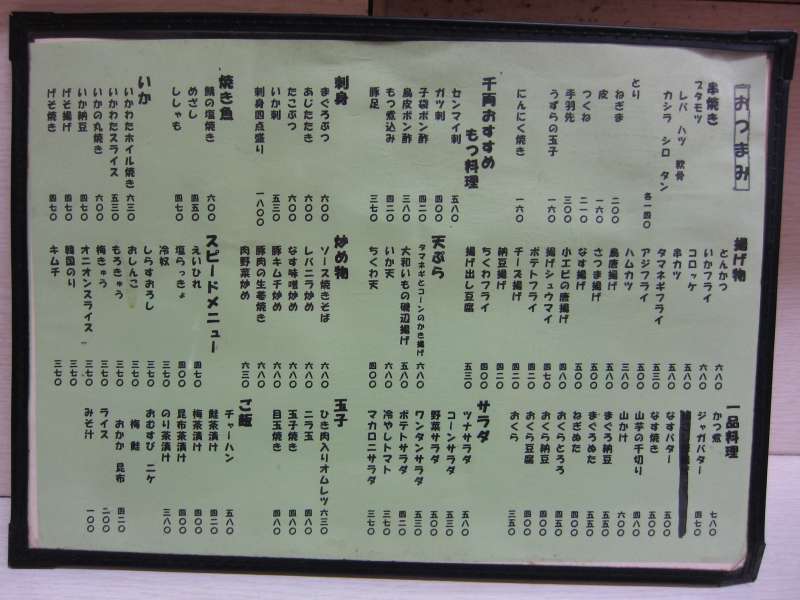 おつまみ
串焼き
ブタモツ
レバ ハツ 軟骨
カシラ シロ タン 各一四〇
とり
ねぎま 二〇〇
皮 一六〇
つくね 二一〇
手羽先 三〇〇
うずらの玉子 一六〇
にんにく焼き 一六〇
千両おすすめ
もつ料理
センマイ刺 五八〇
ガツ刺
子袋ポン酢
鳥皮ポン酢
もつ煮込み 四二〇
豚足 三七〇
刺身
まぐろぶつ 六〇〇
あじたたき 六〇〇
たこぶつ 六〇〇
いか刺 五三〇
刺身四点盛り 一八〇〇
焼き魚
鯖の塩焼き 六〇〇
めざし 四五〇
ししゃも 四七〇
いか
いかわたホイル焼き 六三〇
いかわたスライス 五三〇
いかの丸焼き 六〇〇
いか納豆
げそ揚げ 四七〇
げそ焼き 四七〇
揚げ物
とんかつ 六八〇
いかフライ 六八〇
コロッケ
串カツ 五八〇
タマネギフライ
アジフライ
ハムカツ
鳥唐揚げ 五八〇
さつま揚げ 五〇〇
なす揚げ 五〇〇
小エビの唐揚げ 四八〇
揚げシュウマイ
ポテトフライ 四二〇
チーズ揚げ
納豆揚げ 四二〇
ちくわフライ 四〇〇
揚げ出し豆腐 五三〇
天ぷら
タマネギとコーンのかき揚げ 六八〇
大和いもの磯辺揚げ 五八〇
いか天 五〇〇
ちくわ天 四〇〇
炒め物
ソース焼きそば 六八〇
レバニラ炒め 六八〇
なす味噌炒め 六八〇
豚キムチ炒め 六八〇
豚肉の生姜焼き 六八〇
肉野菜炒め 六三〇
スピードメニュー
えいひれ 四七〇
塩らっきょ 四〇〇
冷奴 三七〇
しらすおろし 三七〇
おしんこ 三七〇
もろきゅう 三七〇
梅きゅう 三七〇
オニオンスライス 三七〇
韓国のり 三七〇
キムチ 三七〇
一品料理
かつ煮 七八〇
ジャガバター 四七〇
なすバター 五〇〇
なす焼き 五〇〇
山芋の千切り 四八〇
山かけ 六〇〇
まぐろ納豆 五五〇
まぐろぬた 五五〇
ねぎぬた 四〇〇
おくらとろろ 四五〇
おくら納豆 四〇〇
おくら豆腐 四〇〇
おくら 三五〇
サラダ
ツナサラダ 五八〇
コーンサラダ 五三〇
野菜サラダ 五〇〇
ワンタンサラダ 五三〇
ポテトサラダ 四二〇
冷やしトマト 三七〇
マカロニサラダ 三七〇
玉子
ひき肉入りオムレツ 六三〇
ニラ玉 四八〇
玉子焼き 四八〇
目玉焼き 四八〇
ご飯
チャーハン 五八〇
鮭茶漬け 四二〇
梅茶漬け 四〇〇
昆布茶漬け 四〇〇
のり茶漬け 三八〇
おむすび 二ケ
梅 鮭
おかか 昆布 四二〇
ライス 二〇〇
みそ汁 一〇〇